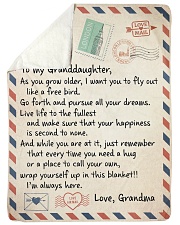 LOVE
MAIL
To my Granddaughter,
As you grow older, I want you to fly out
like a free bird.
Go forth and pursue all your dreams.
Live life to the fullest
and make sure that your happiness
is second to none.
And while you are at it, just remember
that every time you need a hug
or a place to call your own,
wrap yourself up in this blanket!!
I'm always here.
Love, Grandma